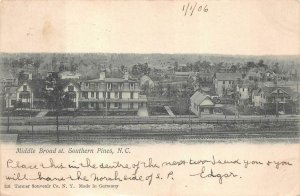 1/1/06
Middle Broad st. Southern Pines, N.C.
Tanner Souvenir Co. N.Y. Made in Germany
Place this in the centre of the most two I send you & you
will have the north side of S.P. Edgar.